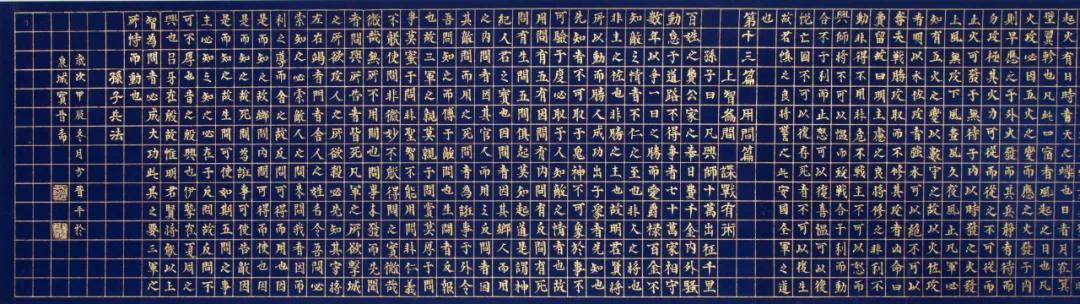 起火有日時者天之燥也日者月在箕
壁翼軫也凡此四宿者有風起之日也凡
火攻必因五火之變而應之火發于內
則早應之于外火發而其兵靜者待而
勿攻極其火力可從而從之不可從而
止火可發于外無待于內以時發之火發
上風無攻下風晝風久夜風止凡軍必
知有五火之變以數守之故以火佐攻
者明以水佐攻者強水可以絕不可以
奪夫戰勝攻取而不修其功者凶命曰
費留故曰明主慮之良將修之非利不
動非得不用非危不戰主不可以怒而
興師將不可以慍而致戰合于利而動
不合于不利而止怒可以復喜慍可以復
悅亡國不可以復存死者不可以復生
故明君慎之良將警之此安國全軍之道
也
第十三篇 用間篇
上智為間 諜戰有術
孫子曰凡興師十萬出征千里
百姓之費公家之奉日費千金內外騷
動怠于道路不得操事者七十萬家相守
數年以爭一日之勝而愛爵祿百金不
知敵之情者不仁之至也非人之將也
非主之佐也非勝之主也故明君賢將
所以動而勝人成功出于眾者先知也
先知者不可取于鬼神不可象於事不
可驗于度必取于人知敵之情者也故
用間有五有因間有內間有反間有死
間有生間五間俱起莫知其道是謂神
紀人君之寶也因間者因其鄉人而用
之內間者因其官人而用之反間者因
其敵間而用之死間者為誑事于外令
吾間知之而傳于敵間也生間者反報
也故三軍之事莫親于間賞莫厚于間
事莫密于間非聖智不能用間非仁義
不能使間非微妙不能得間之實微哉
微哉無所不用間也間事未發而先聞
者間與所告者皆死凡軍之所欲擊城
之所欲攻人之所欲殺必先知其守將
左右謁者門者舍人之姓名令吾間必
索知之必索敵人之間來間我者因而
利之導而舍之故反間可得而用也因
是而知之故鄉間內間可得而使也因
是而知之故死間為誑事可使告敵因
是而知之故生間可使如期五間之事
主必知之知之必在于反間故反間不
可不厚也昔殷之興也伊摯在夏周之
興也呂牙在殷故惟明君賢將能以上
智為間者必成大功此其之要三軍之
所恃而動也
孫子兵法
歲次甲辰冬月 晉平於
泉城寶晉齋